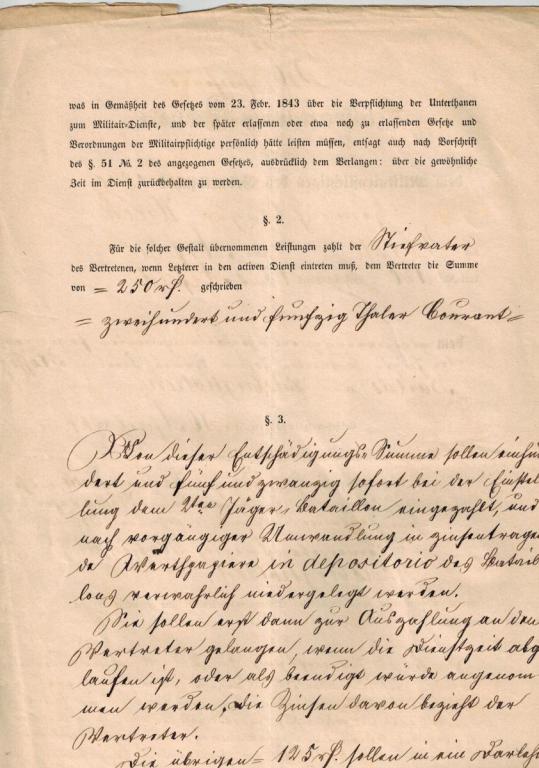 was in Gemäßheit des Gesetzes vom 23. Febr. 1843 über die Verpflichtung der Unterthanen
zum Militair-Dienste, und der später erlassenen oder etwa noch zu erlassenden Gesetze und
Verordnungen der Militairpflichtige persönlich hätte leisten müssen, entsagt auch nach Vorschrift
des §. 51 № 2 des angezogenen Gesetzes, ausdrücklich dem Verlangen: über die gewöhnliche
Zeit im Dienst zurückbehalten zu werden.
§. 2.
Für die solcher Gestalt übernommenen Leistungen zahlt der Stiefvater
des Vertretenen, wenn Letzterer in den activen Dienst eintreten muß, dem Vertreter die Summe
von = 250 rf. geschrieben
= zweihundert und funfzig Thaler Courant =
§. 3.
Von dieser Entschädigungs-Summe sollen einhun
dert und fünf und zwanzig sofort bei der Einstel
lung dem Jäger-Bataillon eingezahlt, und
nach vorgängiger Umwandlung in zinsentragen
de Werthpapiere in depositorio des Batail
lons verwahrlich niedergelegt werden.
Sie sollen erst dann zur Auszahlung an den
Vertreter gelangen, wenn die Dienstzeit abge
laufen ist, oder als beendigt würde angenom
men werden, die Zinsen davon bezieht der
Vertreter.
Die übrigen = 125 rf. sollen in ein Darleh